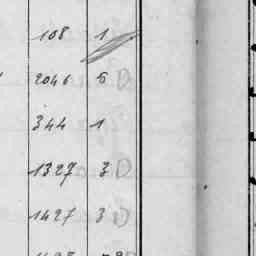 108 1
2046 5 D
344 1
1327 3 D
1427 3 D